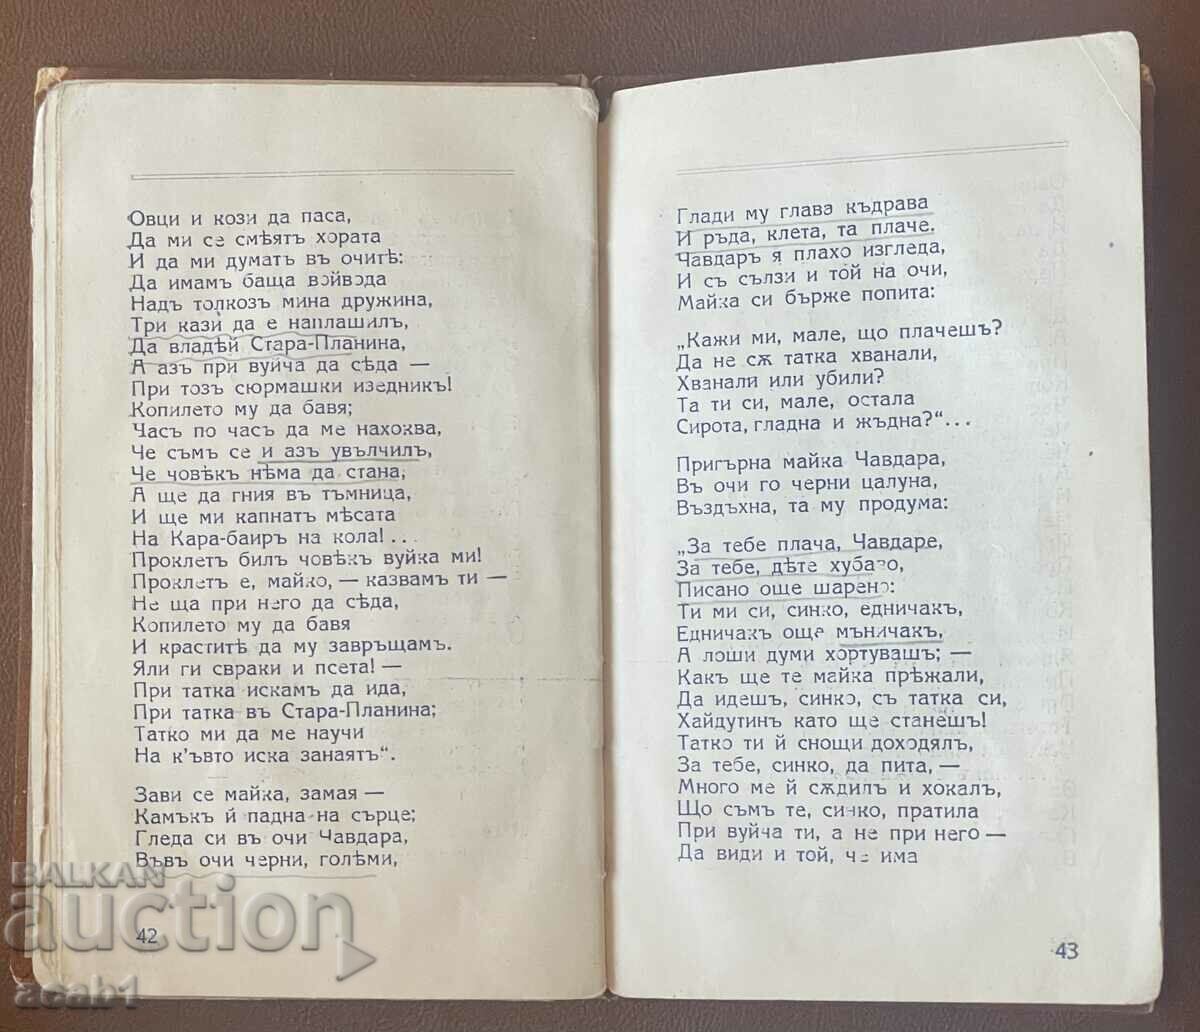 Овци и кози да паса,
Да ми се смѣятъ хората
И да ми думатъ въ очитѣ:
Да имамъ баща войвода
Надъ толкозъ мина дружина,
Три кази да е наплашилъ,
Да владѣй Стара-Планина,
А азъ при вуйча да сѣда —
При тозъ сюрмашки изедникъ!
Копилето му да бавя;
Часъ по часъ да ме нахоква,
Че съмъ се и азъ увълчилъ,
Че човѣкъ нѣма да стана,
А ще да гния въ тъмница,
И ще ми капнатъ мѣсата
На Кара-баиръ на кола!...
Проклетъ билъ човѣкъ вуйка ми!
Проклетъ е, майко, — казвамъ ти —
Не ща при него да сѣда,
Копилето му да бавя
И краститѣ да му завръщамъ.
Яли ги свраки и псета! —
При татка искамъ да ида,
При татка въ Стара-Планина;
Татко ми да ме научи
На к'ъвто иска занаятъ“.
Зави се майка, замая —
Камъкъ й падна на сърце;
Гледа си въ очи Чавдара,
Въвъ очи черни, голѣми,
42
Глади му глава къдрава
И ръда, клета, та плаче.
Чавдаръ я плахо изгледа,
И съ сълзи и той на очи,
Майка си бърже попита:
„Кажи ми, мале, що плачешъ?
Да не сѫ татка хванали,
Хванали или убили?
Та ти си, мале, остала
Сирота, гладна и жъдна?“...
Пригърна майка Чавдара,
Въ очи го черни цалуна,
Въздъхна, та му продума:
„За тебе плача, Чавдаре,
За тебе, дѣте хубаво,
Писано още шарено:
Ти ми си, синко, едничакъ,
Едничакъ още мъничакъ,
А лоши думи хортувашъ; —
Какъ ще те майка прѣжали,
Да идешъ, синко, съ татка си,
Хайдутинъ като ще станешъ!
Татко ти й снощи доходялъ,
За тебе, синко, да пита, —
Много ме й сѫдилъ и хокалъ,
Що съмъ те, синко, пратила
При вуйча ти, а не при него —
Да види и той, че има
43
BALKAN
auction
acab1